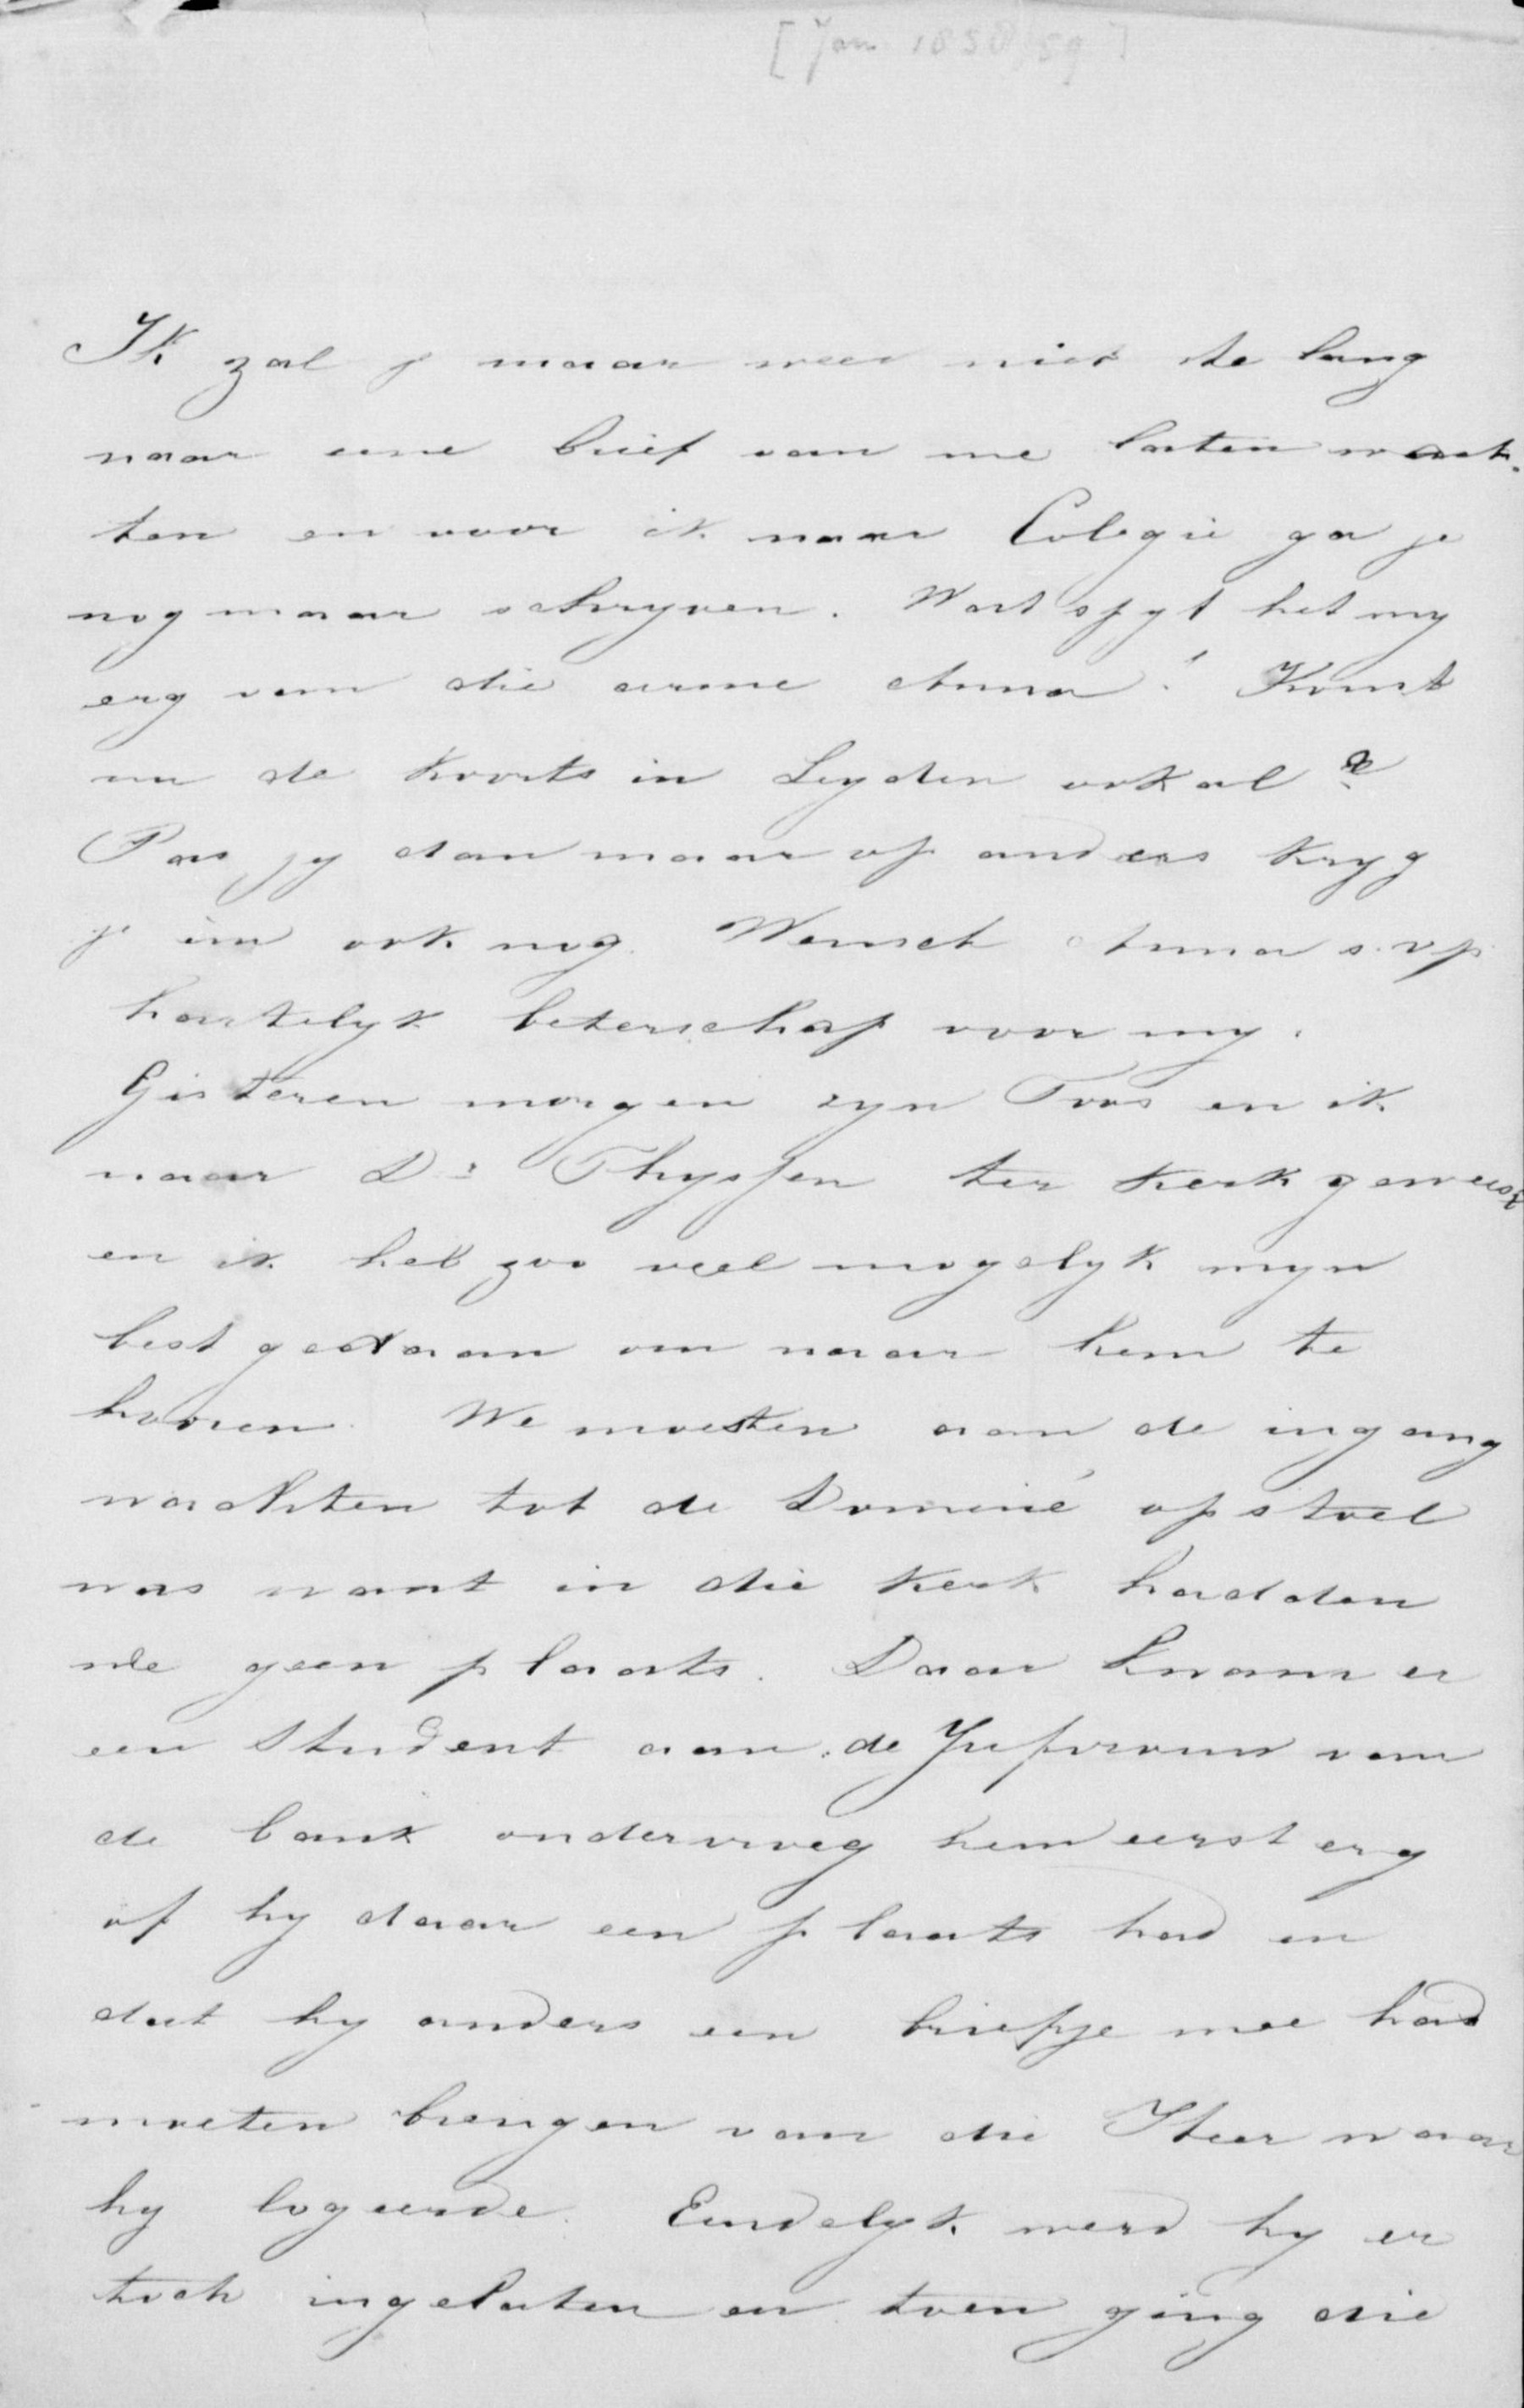 [Jan 1858/59]
Ik zal je maar weer niet te lang
naar eene brief van me laten wach-
ten en voor ik naar Colegie ga je
nog maar schryven. Wat spyt het my
erg van die arme Anna! Komt
nu de koorts in Leyden ook al?
Pas jy dan maar op anders kryg
je im ook nog. Wensch Anna s.v.p.
hartelyk beterschap voor my.
Gisteren morgen zyn Toos en ik
naar Ds Thyssen ter kerk geweest
en ik heb zoo veel mogelyk myn
best gedaan om naar hem te
hooren. We moesten aan de ingang
wachten tot de Dominé op stoel
was want in die kerk hadden
we geen plaats. Daar kwam er
een student aan, de Jufvrouw van
de bank ondervroeg hem eerst erg
of hy daar een plaats had en
dat hy anders een briefje mee had
moeten brengen van die Heer waar
hy logeerde. Eindelyk werd hy er
toch ingelaten en toen ging die